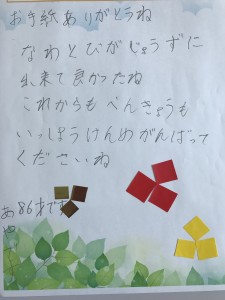 お手紙ありがとうね
なわとびがじょうずに
出来て良かったね
これからもべんきょうも
いっしょうけんめがんばって
くださいね
86才です